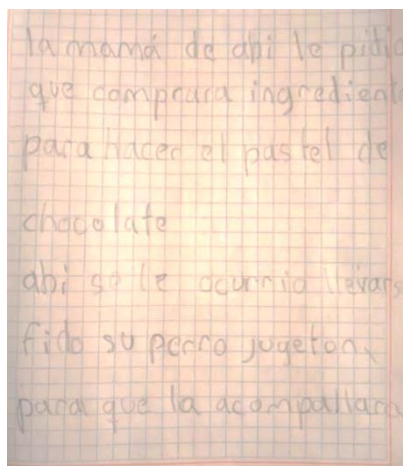 la mamá de abi le pidio
que comprara ingrediente
para hacer el pastel de
chocolate
abi se le ocurrio llevars
fido su perro jugeton,
para que la acompallara